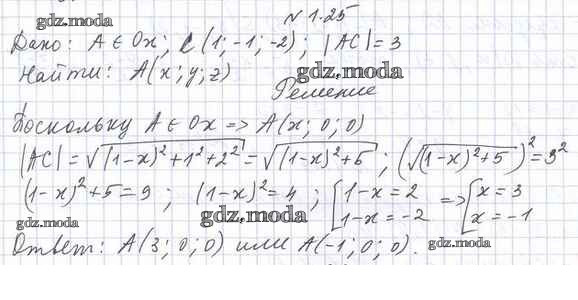 gdz.moda
N 1.25
Дано: A ∈ Ox; C (1; -1; -2); |AC| = 3
Найти: A(x; y; z)
gdz.moda
Решение
Поскольку A ∈ Ox => A(x; 0; 0)
|AC| = √((1-x)² + 1² + 2²) = √((1-x)² + 5); (√((1-x)² + 5))² = 3²
(1-x)² + 5 = 9; (1-x)² = 4; [1-x = 2 => [x = 3
1-x = -2 x = -1
gdz.moda gdz.moda
Ответ: A(3; 0; 0) или A(-1; 0; 0). gdz.moda